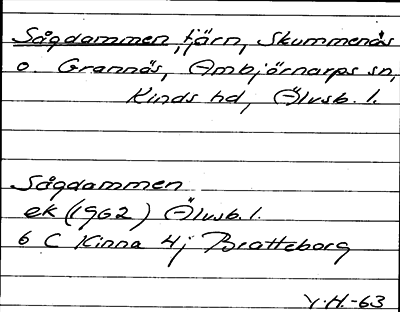 Sågdammen, tjärn, Skummenäs
o. Grannäs, Ambjörnarps sn,
Kinds hd, Älvsb. l.
Sågdammen
ek (1962) Älvsb. l.
6 C Kinna 4j Bratteborg
Y.H.-63